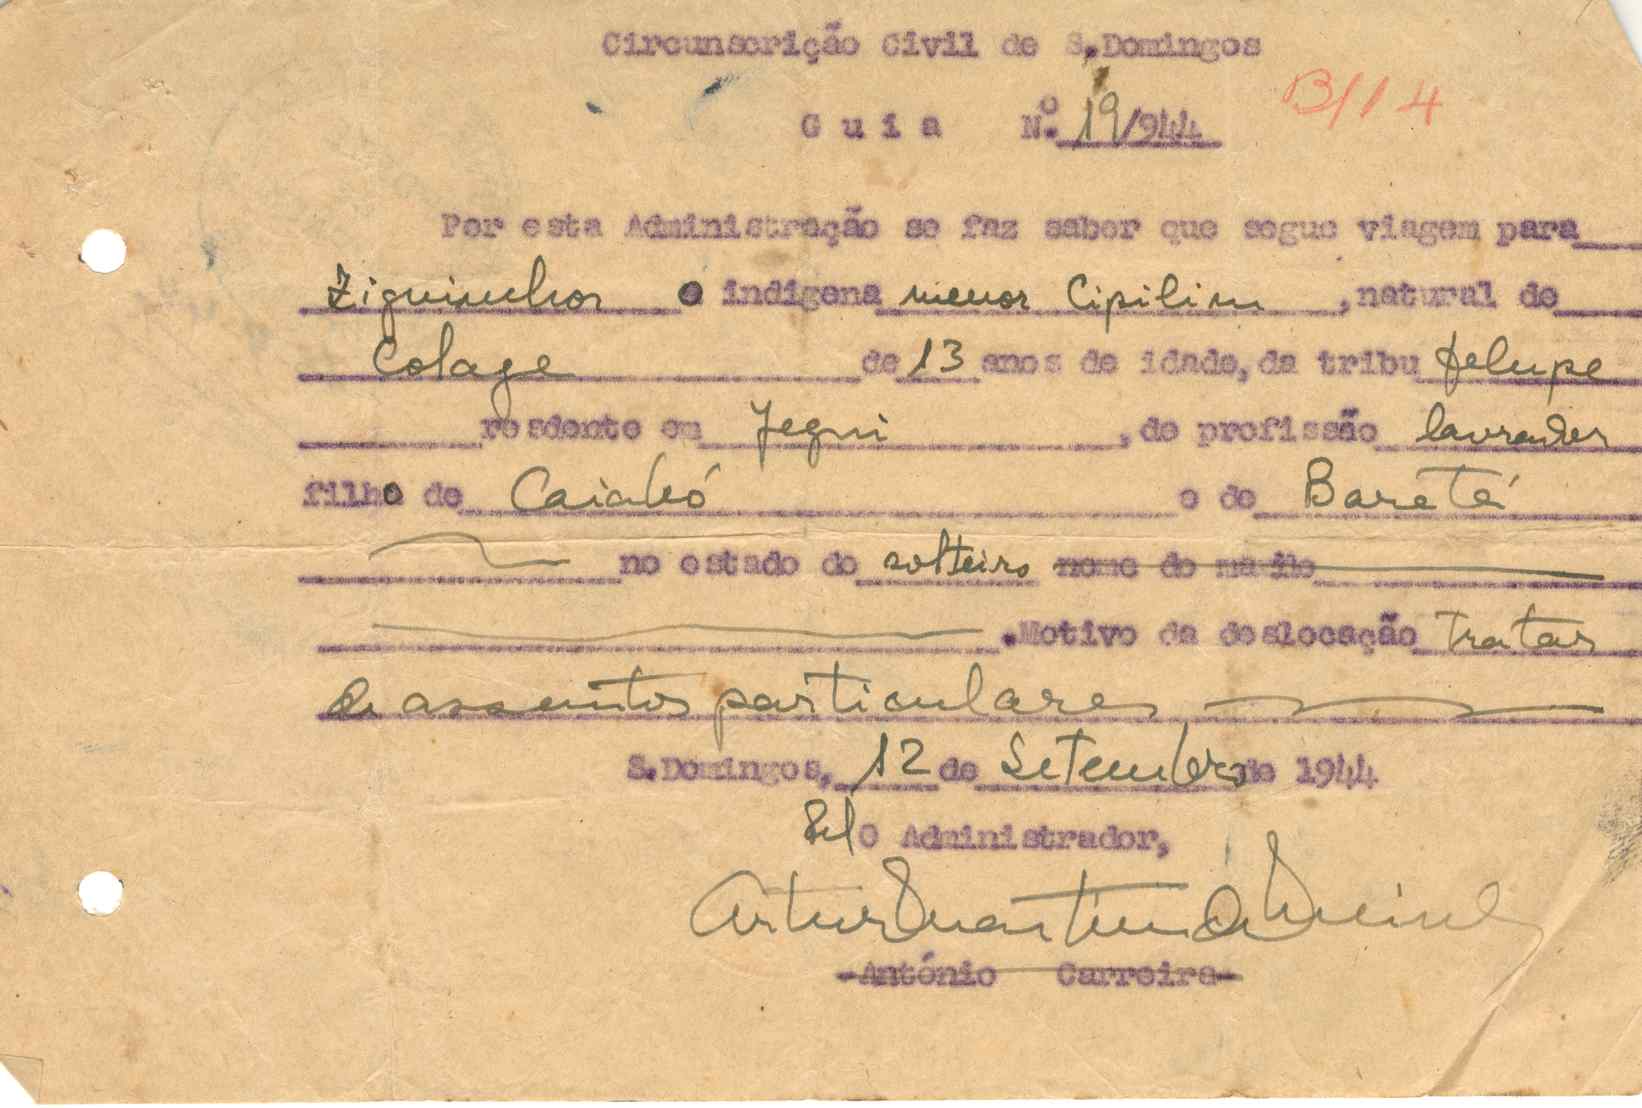 Circunscrição Civil de S.Domingos
B/14
Guia Nº. 19/944
Por esta Administração se faz saber que segue viagem para
Ziguinchor o indigena menor Cipilim, natural de
Colage de 13 anos de idade, da tribu felupe
resdente em Jegui, de profissão lavrador
filho de Caiabó e de Bareté
no estado de solteiro nome do marido
.Motivo da deslocação Tratar
de assuntos particulares
S.Domingos, 12 de Setembro de 1944
O Administrador,
Artur Martins de
-António Carreira-